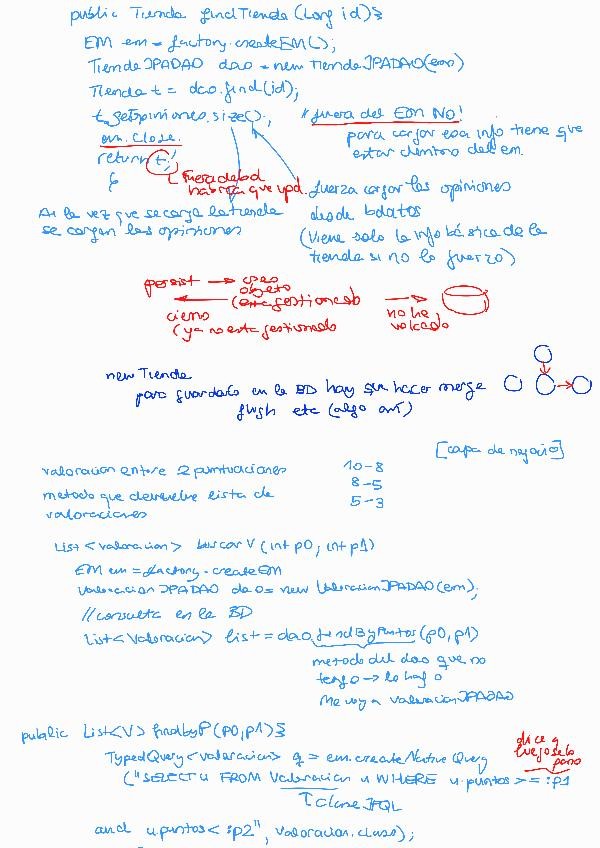 public Tienda findTienda (Long id) {
EM em = factory.createEM();
TiendaJPADAO dao = new TiendaJPADAO(em)
Tienda t = dao.find(id);
t.getOpiniones.size(); // fuera del EM NO!
em.close. para cargar esa info tiene que
return t; estar dentro del em.
}
fuera de bd
habría que upd. fuerza cargar las opiniones
A la vez que se carga la tienda desde bdatos
se cargan las opiniones (viene solo la info básica de la
tienda si no lo fuerzo)
persist → creo
objeto
(esta gestionado
cierro no he
(ya no esta gestionado volcado
new Tienda
para guardarlo en la BD hay que hacer merge
flush etc (algo ant)
[capa de negocio]
valoracion entre 2 puntuaciones 10-8
metodo que devuelve lista de 8-5
valoraciones 5-3
List<valoracion> buscarV (int p0, int p1)
EM em = factory.createEM
ValoracionJPADAO dao = new ValoracionJPADAO(em);
//consulta en la BD
List<Valoracion> list = dao.findByPuntos(p0,p1)
metodo del dao que no
tengo → lo hago
Me voy a valoracionJPADAO
public List<V> findbyP(p0,p1) {
TypedQuery<valoracion> q = em.createNativeQuery
dice q
luego se lo
paso
("SELECT u FROM Valoracion u WHERE u.puntos >= :p1
clase JPQL
and u.puntos < :p2", valoracion.class);